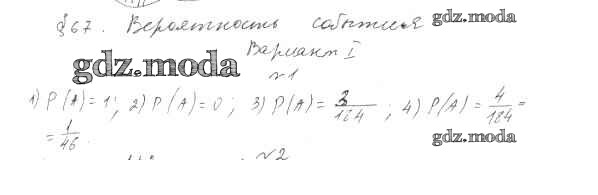 §67. Вероятность события gdz.moda
Вариант I
gdz.moda
№1
1) P(A)=1; 2) P(A)=0; 3) P(A)=3/184; 4) P(A)=4/184=
=1/46. gdz.moda
№2